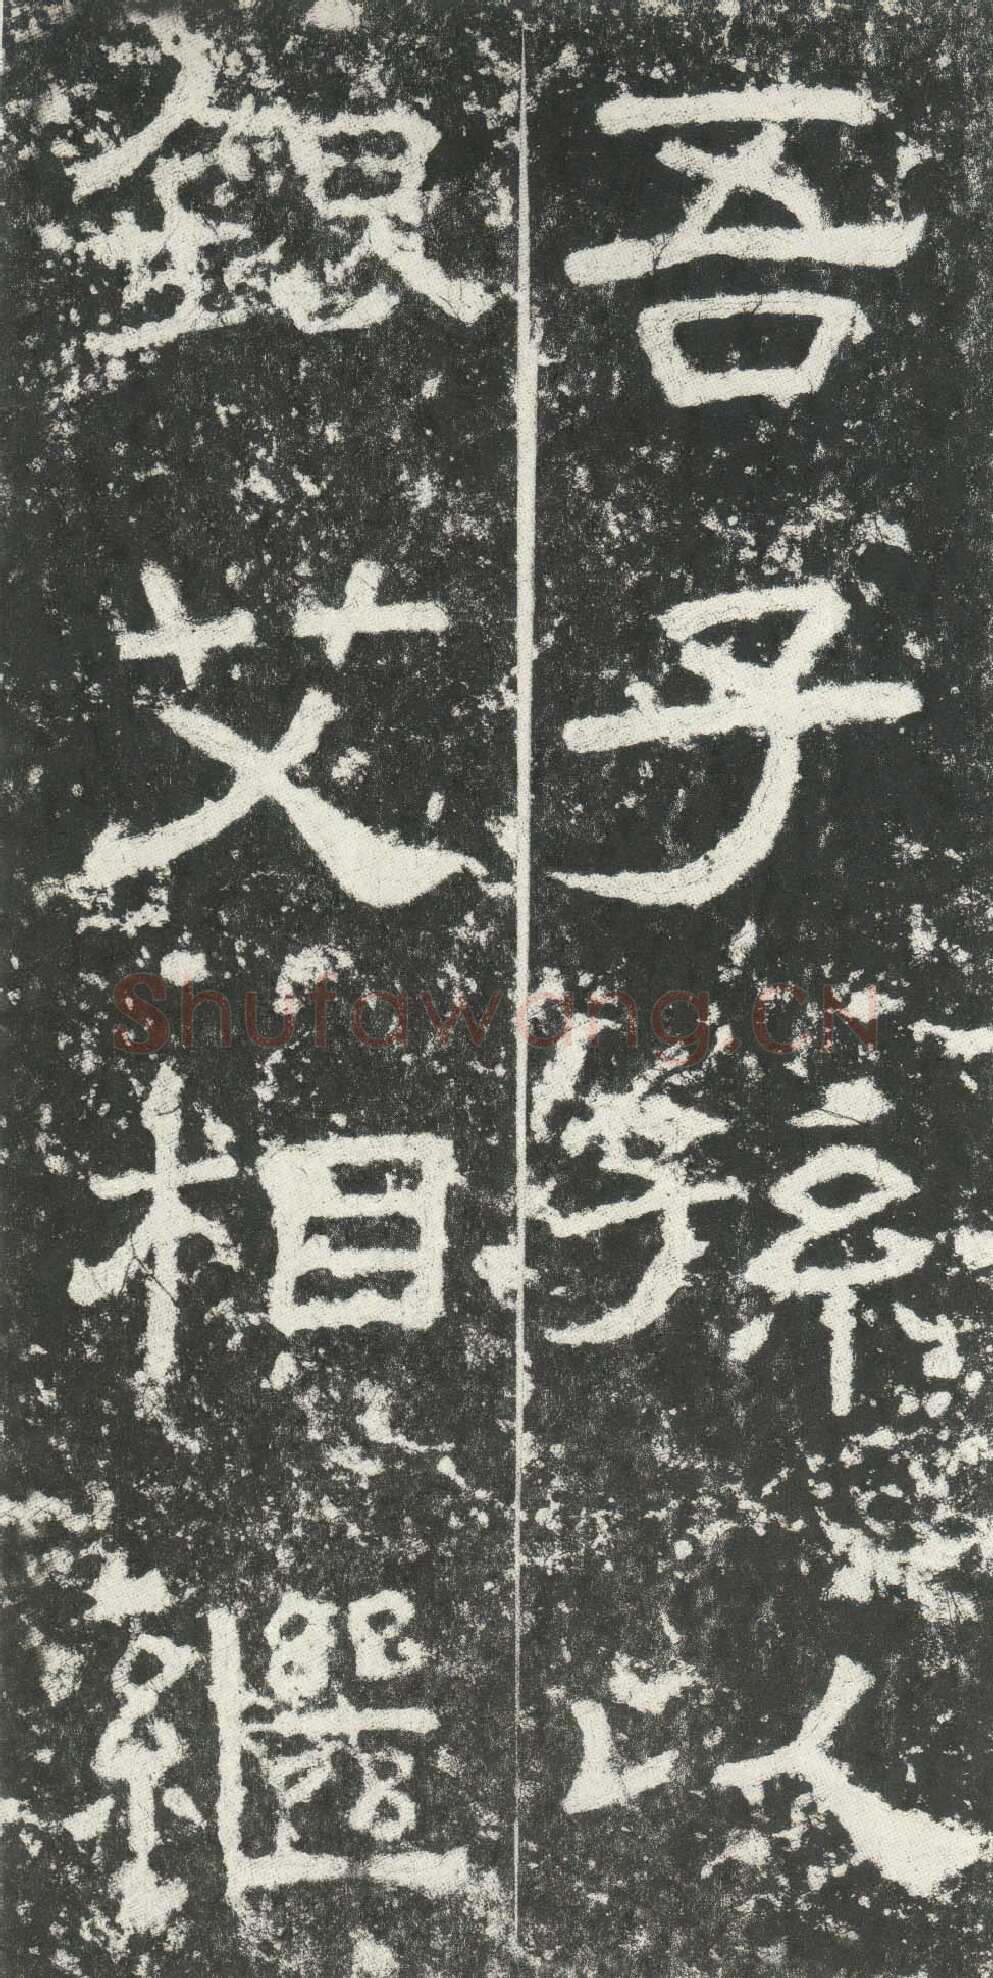 吾子孫以
銀艾相繼
Shufawang.CN